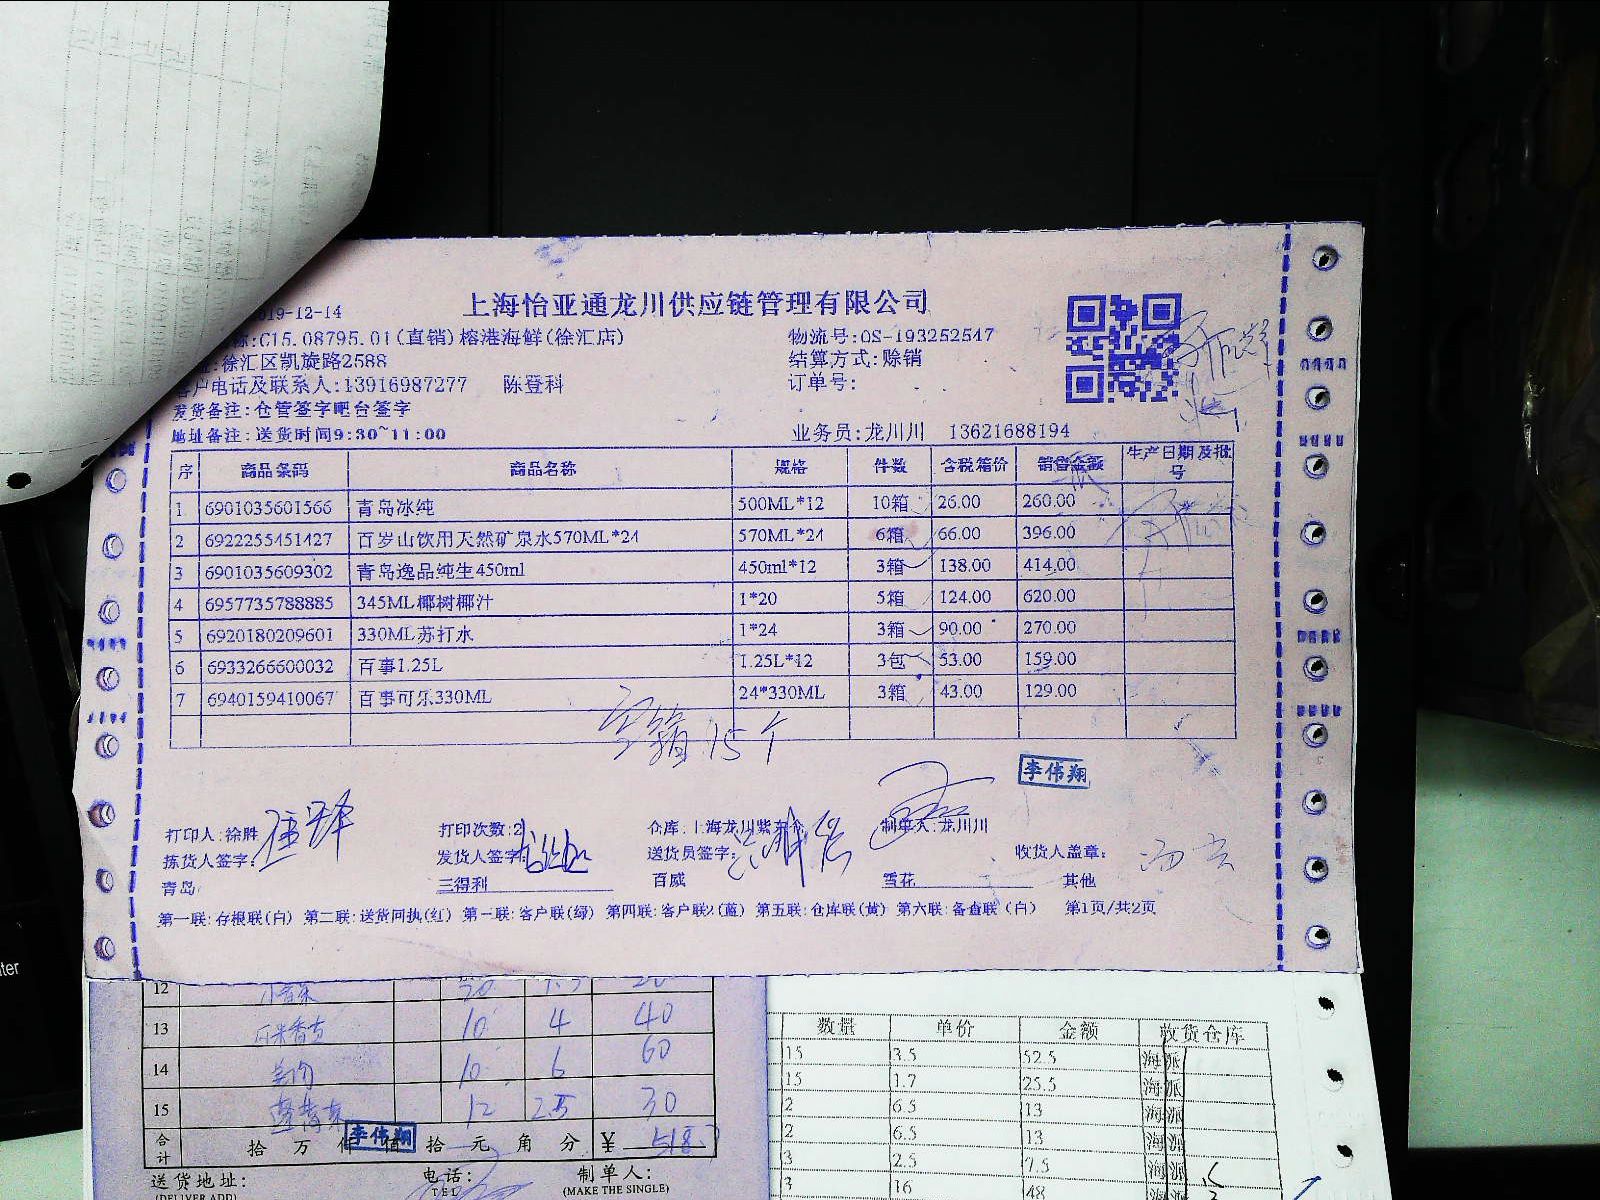 上海怡亚通龙川供应链管理有限公司
19-12-14
C15.08795.01(直销)榕港海鲜(徐汇店) 物流号:OS-193252547
徐汇区凯旋路2588 结算方式:赊销
客户电话及联系人:13916987277 陈登科 订单号:
发货备注:仓管签字吧台签字
地址备注:送货时间9:30~11:00 业务员:龙川川 13621688194
序 商品条码 商品名称 规格 件数 含税箱价 销售金额 生产日期及批号
1 6901035601566 青岛冰纯 500ML*12 10箱 26.00 260.00
2 6922255451427 百岁山饮用天然矿泉水570ML*24 570ML*24 6箱 66.00 396.00
3 6901035609302 青岛逸品纯生450ml 450ml*12 3箱 138.00 414.00
4 6957735788885 345ML椰树椰汁 1*20 5箱 124.00 620.00
5 6920180209601 330ML苏打水 1*24 3箱 90.00 270.00
6 6933266600032 百事1.25L 1.25L*12 3包 53.00 159.00
7 6940159410067 百事可乐330ML 24*330ML 3箱 43.00 129.00
空箱15个
李伟翔
打印人:徐胜 打印次数:2 仓库:上海龙川紫东仓 制单人:龙川川
拣货人签字: 发货人签字: 送货员签字: 收货人盖章:
青岛 三得利 百威 雪花 其他
第一联:存根联(白) 第二联:送货回执(红) 第三联:客户联(绿) 第四联:客户联2(蓝) 第五联:仓库联(黄) 第六联:备查联(白) 第1页/共2页
12
13 10 4 40
14 10 6 60
15 12 2.5 30
合计 拾 万 仟 佰 拾 元 角 分 ¥
李伟翔
送货地址: 电话: 制单人:
(DELIVER ADD) TEL (MAKE THE SINGLE)
数量 单价 金额 收货仓库
15 3.5 52.5 海派
15 1.7 25.5 海派
2 6.5 13 海派
2 6.5 13 海派
3 2.5 7.5 海派
3 16 48 海派